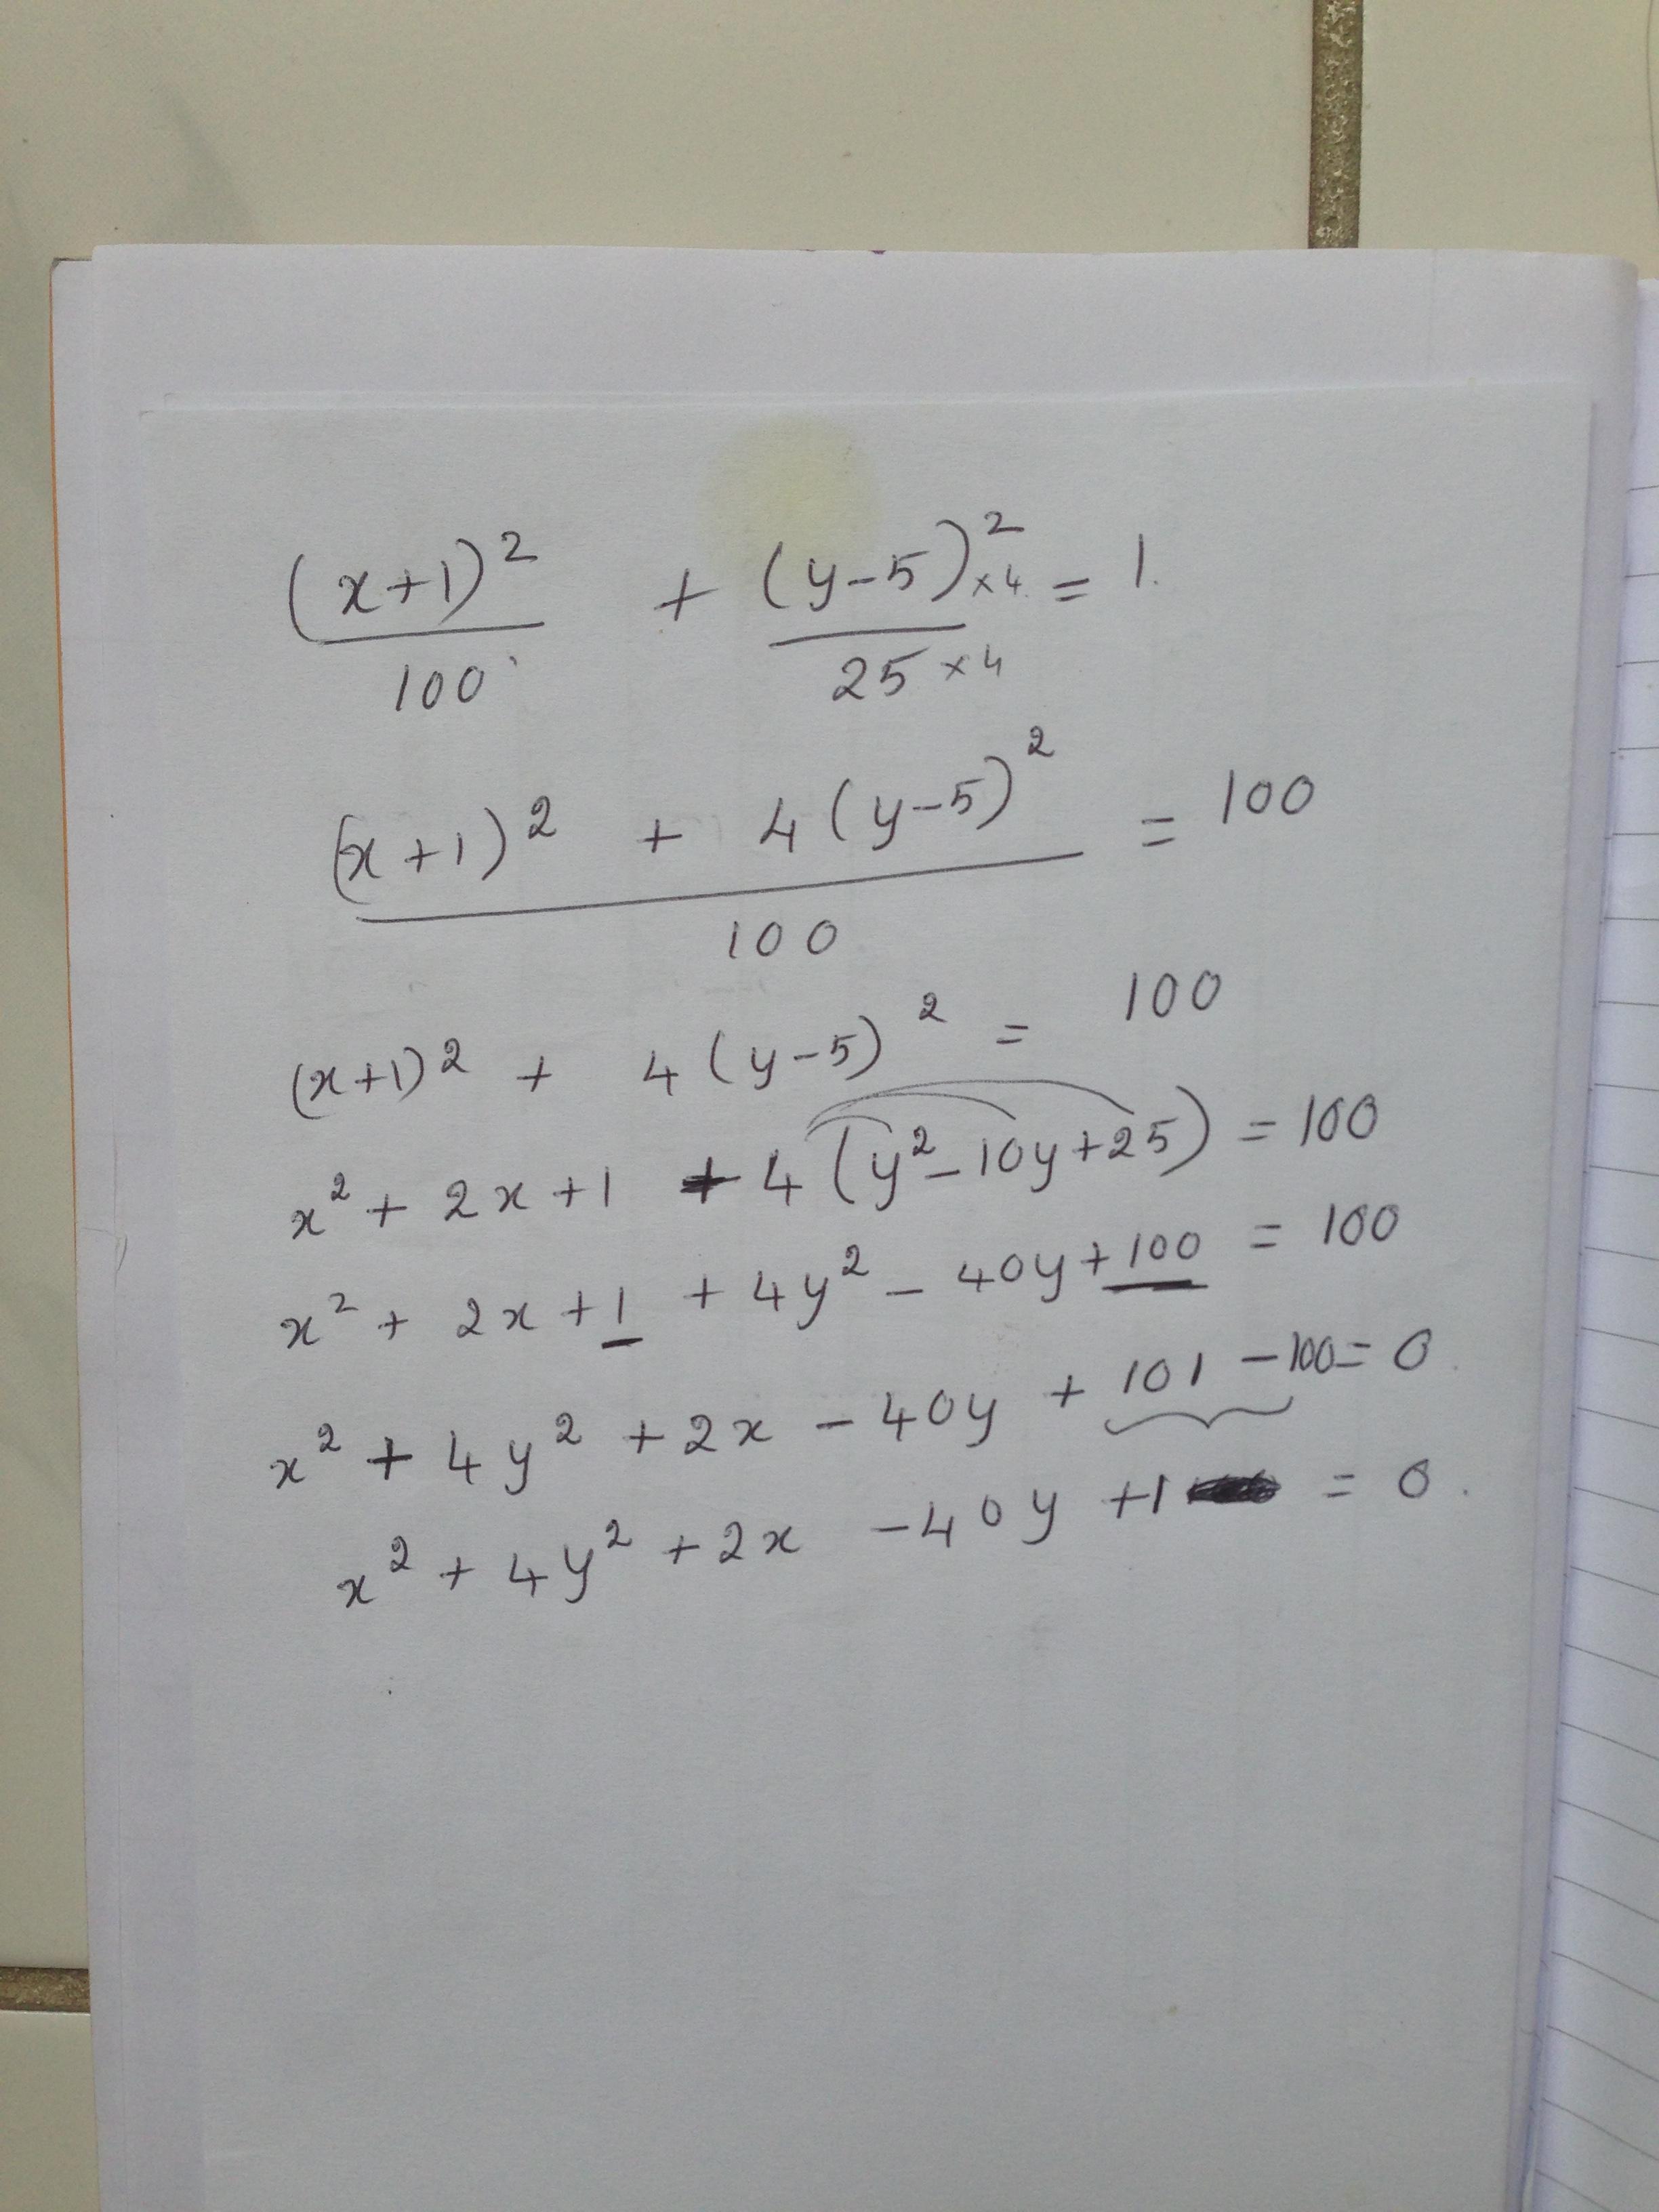 (x+1)²/100 + (y-5)²×4/25×4 = 1.
(x+1)² + 4(y-5)²/100 = 100
(x+1)² + 4(y-5)² = 100
x² + 2x+1 + 4(y²-10y+25) = 100
x² + 2x+1 + 4y² - 40y+100 = 100
x² + 4y² +2x - 40y + 101 -100= 0
x² + 4y² +2x -40y +1 = 0.